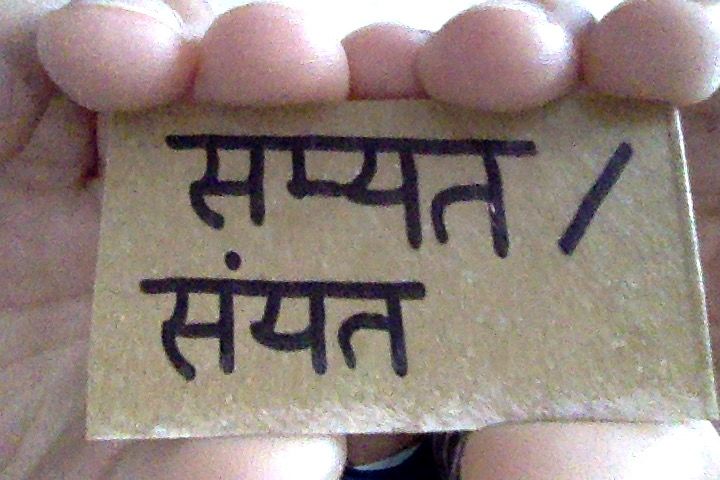 सम्यत /
संयत